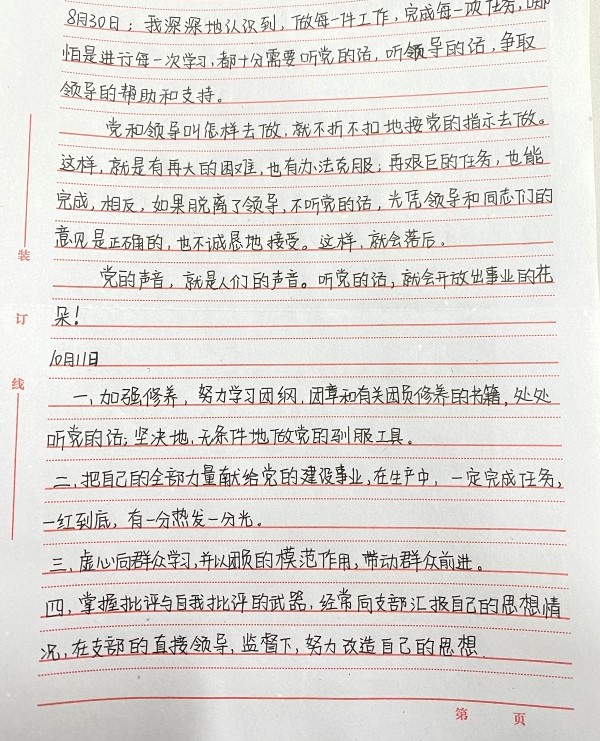 8月30日；我深深地认识到，做每一件工作，完成每一项任务，哪
怕是进行每一次学习，都十分需要听党的话，听领导的话，争取
领导的帮助和支持。
党和领导叫怎样去做，就不折不扣地按党的指示去做。
这样，就是有再大的困难，也有办法克服；再艰巨的任务，也能
完成，相反，如果脱离了领导，不听党的话，光凭领导和同志们的
意见是正确的，也不诚恳地接受。这样，就会落后。
党的声音，就是人们的声音。听党的话，就会开放出事业的花
朵！
10月11日
一，加强修养，努力学习团纲，团章和有关团员修养的书籍，处处
听党的话；坚决地，无条件地做党的驯服工具。
二，把自己的全部力量献给党的建设事业，在生产中，一定完成任务，
一红到底，有一分热发一分光。
三，虚心向群众学习，并以团员的模范作用，带动群众前进。
四，掌握批评与自我批评的武器，经常向支部汇报自己的思想情
况，在支部的直接领导，监督下，努力改造自己的思想.
装
订
线
第 页